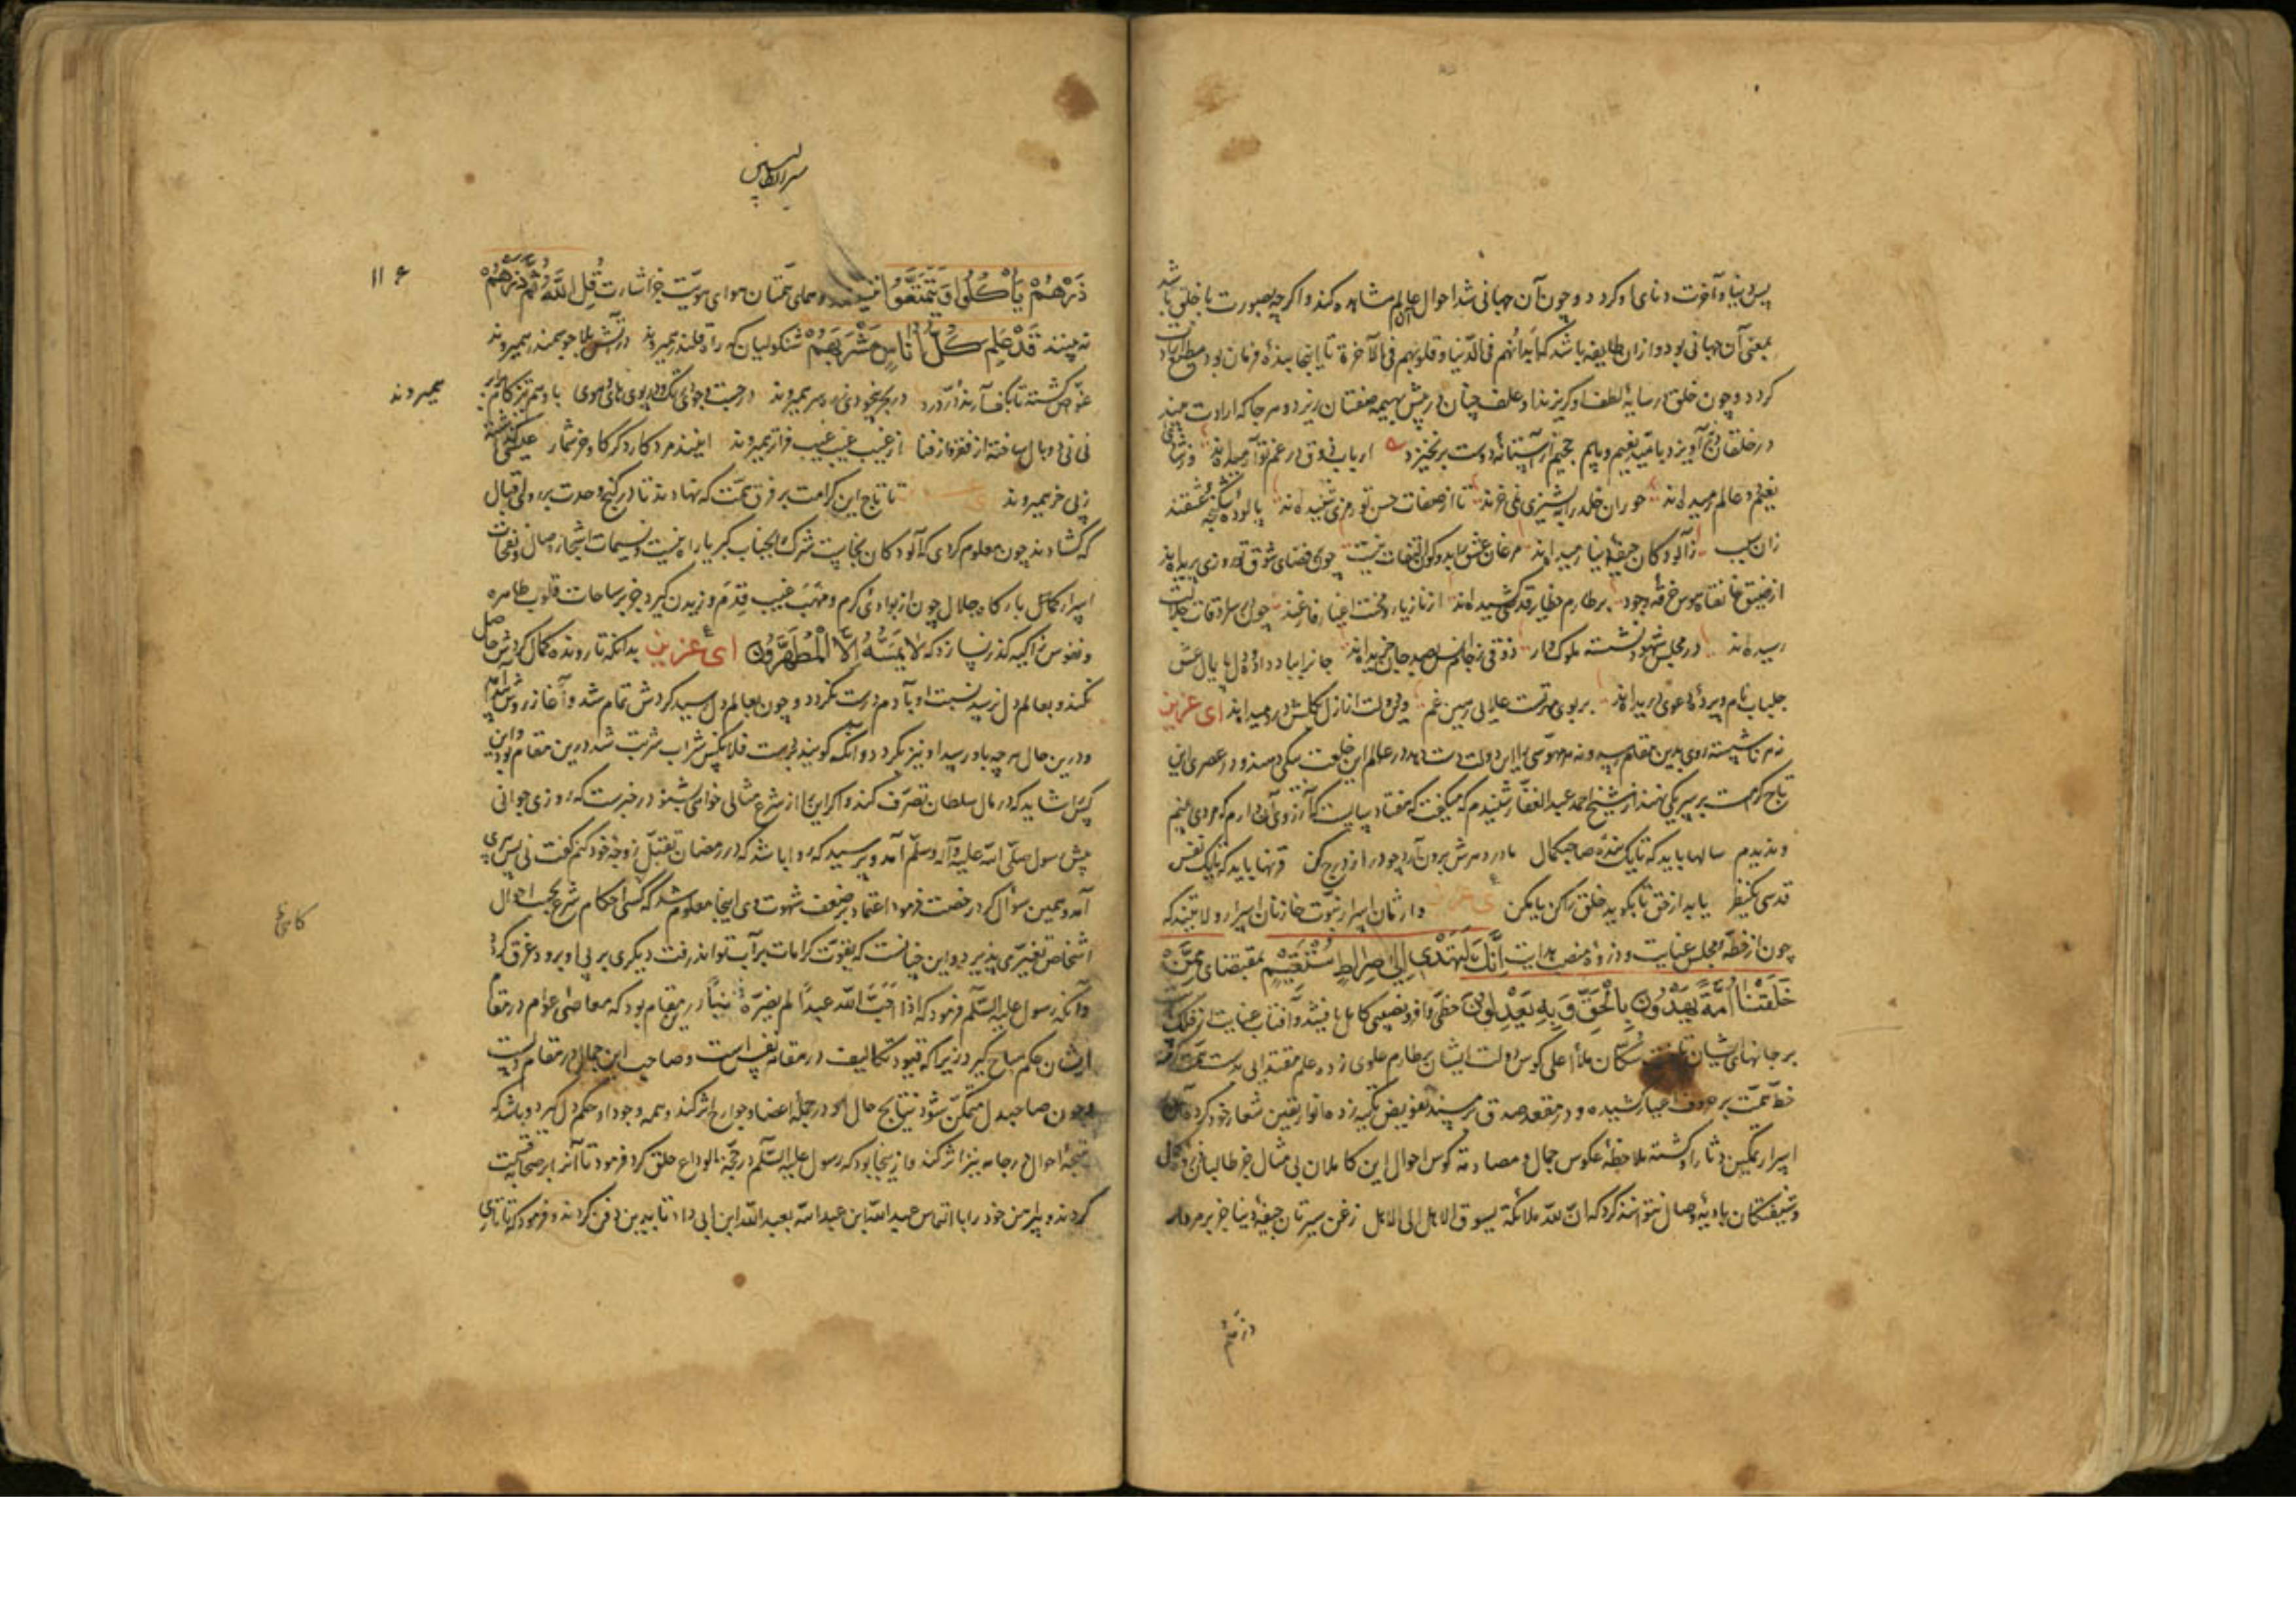 پس دنیا و آخرت دنیای او کردد و چون آن جهانی شد احوال عالم مشاهده کند و اکر چه بصورت با خلق باشد
بمعنی آن جهانی بود و ازان طایفه باشد که ابدانهم فی الدنیا و قلوبهم فی الآخرة تا اینجا بنده فرمان بود
کردد و چون خلق در سایه لطف او کریزند او علف چنان در پیش بهیمه صفتان ریزد و هر جا که ارادت بیند
در خلقان آویزد بامید نعیم و بیم جحیم از آستانه دوست برنخیزد ارباب ذوق در غم تو آرمیده‌اند
نعیم دو عالم رمیده‌اند حوران خلد را بپشیزی نمی‌خرند تا از صفات حسن تو رمزی شنیده‌اند
زان سبب ز آلودکان جیفه دنیا رمیده‌اند مرغان عرش را بدو کون التفات نیست چون در فضای شوق تو روزی پریده‌اند
از مضیق خانقاه هوس خرقه وجود بر طارم حظایر قدس کشیده‌اند از ناز یار و محنت اغیار فارغند چون در سرادقات جلالت
رسیده‌اند در مجلس شهود نشسته ملوک‌وار ذوقی ز جام انس بصد جان خریده‌اند جانرا بباد داده و دل پایمال عشق
جلباب نام و پرده دعوی دریده‌اند بر بوی درت علایی رهین غم ای عزیز
نه هر ناشسته روی بدین مقام رسد و نه هر مهوسی را این دولت دست دهد در عالم این خلعت بیکی دهند و در عصری این
تاج کرامت بر سر یکی نهند از شیخ احمد عبدالغفار شنیدم که میکفت که هفتاد سالست که آرزوی آن دارم که مردی بینم
و ندیدم سالها باید که تا یک بنده صاحبکمال مادر دهرش برون آرد چو در از درج کن قرنها باید که تا یک نفس
قدسی یک نظر یابد از حق تا بکوید خلق را کن یا مکن ای عزیز وارثان اسرار نبوت خازنان اسرار ولایتند که
چون از خطه مجلس عنایت و ذروه منصب هدایت اِنَّكَ لَتَهْدِي اِلَى صِرَاطٍ مُسْتَقِيمٍ بمقتضای مِمَّنْ
خَلَقْنَا اُمَّةٌ يَهْدُونَ بِالْحَقِّ وَ بِهِ يَعْدِلُونَ حظی وافر و نصیبی کامل یافتند و آفتاب عنایت از فلک
بر جانهای ایشان تافت سکان ملأ اعلی کوس دولت ایشان بر طارم علوی زده علم مقتدایی بدست همت کرفته
خط همت بر حروف اغیار کشیده و در مقعد صدق بر مسند تفویض تکیه زده انوار یقین شعار خود کرده
اسرار تمکین دثار داشته ملاحظه عکوس جمال و مصادمه کوس احوال این کاملان بی مثال جز طالبان
و شیفتکان بادیه وصال نتوانند کرد که ان لله ملائکة یسوق الاهل الی الاهل زغن سیرتان جیفه دنیا جز بر مردار
ذرهم
سیرالطالبین
۱۱۶
ذَرْهُمْ يَأْكُلُوا وَ يَتَمَتَّعُوا و همای همتان هوای هویت جز اشارت قُلِ اللّٰهُ ثُمَّ ذَرْهُمْ
نه بینند قَدْ عَلِمَ كُلُّ اُنَاسٍ مَشْرَبَهُمْ شنکولیان که راه قلندر همیروند در آتش بلا چو سمندر همیروند
غواص کشته تا بکف آرند در در در بحر بیخودی همه بر سر همیروند در جست و جوی و تک و پوی و های و هوی با درد همچو
همیروند
بی پر و بال ساخته از فقر و از فنا از غیب غیب غیب فراتر همیروند اینند مرد کار دکر کاو و خر شمار
زپی خر همیروند تا تاج این کرامت بر فرق همت که نهادند تا در کنج وحدت بر دل اقبال
که کشادند چون معلوم کردی که آلودکان نجاست شرک را بجناب کبریا راه نیست و نسیمات اشجار وصال و نفحات
اسرار کمال بارکاه جلال چون از بوادی کرم و مهب غیب قدم وزیدن کیرد جز بر ساحات قلوب طاهره
و نفوس زاکیه کذر نسازد که لَا يَمَسُّهُ اِلَّا الْمُطَهَّرُونَ ای عزیز بدانکه تا رونده کمال کردش حاصل
نکند و بعالم دل نرسد نسبت او بآدم درست نکردد و چون بعالم دل رسید کردش تمام شد و آغاز روش پدید آمد
و درین حال هر چه بدو رسید او نیز بکردد و آنکه کویند شراب شربت شد درین مقام بود و این
کسی را شاید که در مال سلطان تصرف کند و اکر این را از شرع مثالی خواهی بشنو در خبرست که روزی جوانی
پیش رسول صلی الله علیه و آله و سلم آمد و پرسید که روا باشد که در رمضان تقبیل زوجه خود کنم کفت نی پس پیری
آمد و همین سؤال کرد رخصت فرمود اعتماد بر ضعف شهوت وی اینجا معلوم شد که کسی احکام شرع بحسب احوال
کامح
اشخاص تغیر می پذیرد و این چنانست که بقوت کرامات بر آب تواند رفت دیکری بر پی او برود غرق کردد
و آنکه رسول علیه السلام فرمود که اذا احب الله عبدا لم یضره ذنب درین مقام بود که معاصی عوام در مقام
ایشان حکم مباح کیرد زیرا که قیود تکالیف در مقام نفس است و صاحب این جمال در مقام دلست
و چون صاحبدل متمکن شود نتایج حال او در جمله اعضا و جوارح اثر کند و همه وجود او حکم دل کیرد و باشد که
نتیجه احوال در جامه نیز اثر کند و ازینجا بود که رسول علیه السلام در حجة الوداع حلق کرد فرمود تا آنرا بر صحابه قسمت
کردند و پیراهن خود را با التماس عبدالله ابن عبدالله بعبدالله ابن ابی داد تا بدین دفن کردند و فرمود که تا